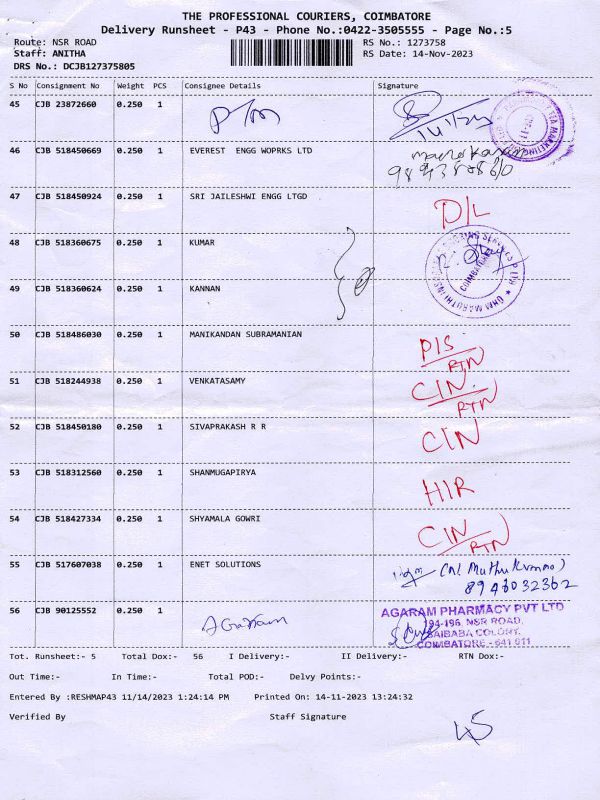 THE PROFESSIONAL COURIERS, COIMBATORE
Delivery Runsheet - P43 - Phone No.:0422-3505555 - Page No.:5
Route: NSR ROAD RS No.: 1273758
Staff: ANITHA RS Date: 14-Nov-2023
DRS No.: DCJB127375805
S No Consignment No Weight PCS Consignee Details Signature
45 CJB 23872660 0.250 1
46 CJB 518450669 0.250 1 EVEREST ENGG WOPRKS LTD
47 CJB 518450924 0.250 1 SRI JAILESHWI ENGG LTGD D/L
48 CJB 518360675 0.250 1 KUMAR
49 CJB 518360624 0.250 1 KANNAN
COIMBATORE
50 CJB 518486030 0.250 1 MANIKANDAN SUBRAMANIAN P/S
RTN
51 CJB 518244938 0.250 1 VENKATASAMY C/N
RTN
52 CJB 518450180 0.250 1 SIVAPRAKASH R R C/N
53 CJB 518312560 0.250 1 SHANMUGAPIRYA H/R
54 CJB 518427334 0.250 1 SHYAMALA GOWRI C/N
RTN
55 CJB 517607038 0.250 1 ENET SOLUTIONS
8943032362
56 CJB 90125552 0.250 1 AGARAM PHARMACY PVT LTD
194-196, NSR ROAD,
SAIBABA COLONY,
COIMBATORE - 641 011
Tot. Runsheet:- 5 Total Dox:- 56 I Delivery:- II Delivery:- RTN Dox:-
Out Time:- In Time:- Total POD:- Delvy Points:-
Entered By :RESHMAP43 11/14/2023 1:24:14 PM Printed On: 14-11-2023 13:24:32
Verified By Staff Signature
45